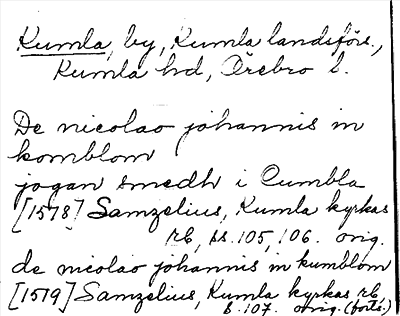 Kumla, by, Kumla landsförs.,
Kumla hd, Örebro l.
De nicolao johannis in
komblom
jogan smedh i Cumbla
[1578] Samzelius, Kumla kyrkas
rb, ss. 105, 106. orig.
de nicolao johannis in kumblom
[1579] Samzelius, Kumla kyrkas rb,
s. 107. orig. (forts.)